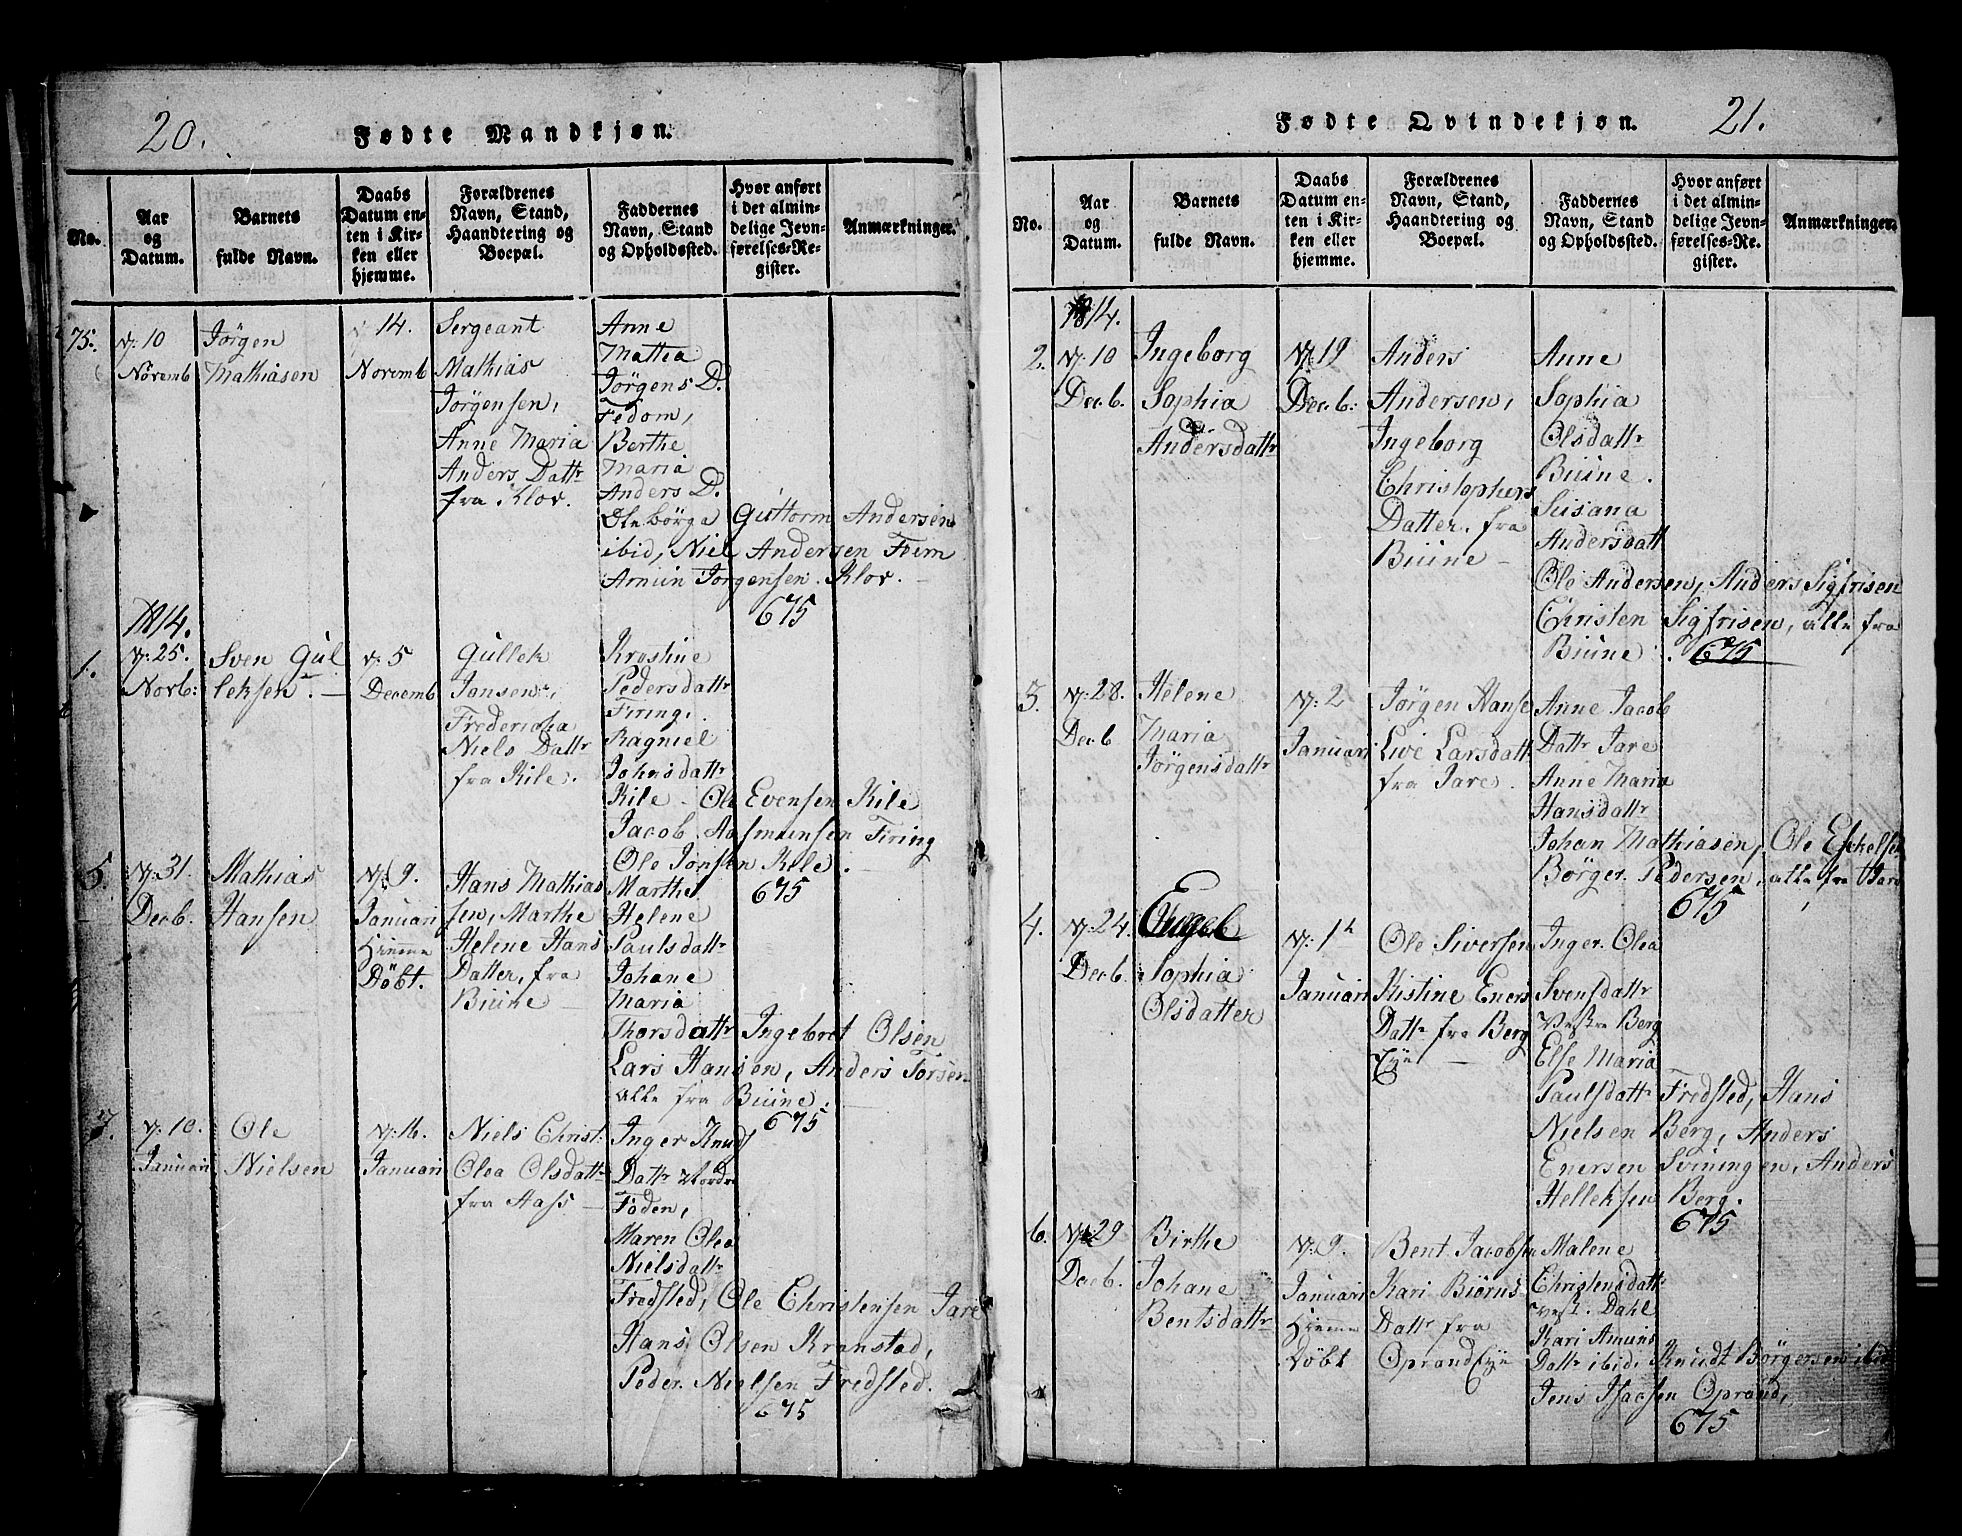 20.
Fødte Mandkjøn.
No.
Aar
og
Datum.
Barnets
fulde Navn.
Daabs
Datum en-
ten i Kir-
ken eller
hjemme.
Forældrenes
Navn, Stand,
Haandtering og
Boepæl.
Faddernes
Navn, Stand
og Opholdssted.
Hvor anført
i det almin-
delige Jevn-
førelses-Re-
gister.
Anmærkninger.
75.
10
Novemb
Jørgen
Mathiasen
14.
Novemb
Sergeant
Mathias
Jørgensen,
Anne Maria
Anders Dattr
fra Klov.
Anne
Mattea
Jørgens D.
Fedom,
Berthe
Maria
Anders D.
Ole børga Guttorm Andersen
ibid, Niel Andersen Fiem
Amun Jorgensen. Klov.
675
1814.
1.
25.
Novb:
Sven Gul
leksen.
5
Decemb
Gullek
Jonsen,
Fredericha
Niels Dattr
fra Kile.
Krostine
Pedersdattr
Firing,
Ragniel
Johnsdattr
Kile - Ole Evensen Kile
Jacob Aasmunsen Firing
Ole Jonsen Kile.
675
5.
31.
Decb.
Mathias
Hansen
9.
Januari
Hiemme
Döbt.
Hans Mathias
sen, Marthe
Helene Hans
Datter, fra
Biune
Marthe
Helene
Paulsdattr
Johane
Maria
Thorsdattr Ingebret Olsen
Lars Hansen, Anders Torsen
alle fra Biune.
675
7.
10.
Januari
Ole
Nielsen
16.
Januari
Niels Christ:
Olea Olsdattr
fra Hass
Inger Knuds
Dattr Nordre
Foden,
Maren Olea
Nielsdattr
Fredsted, Ole Christensen Jare
Hans Olsen Kranstad,
Peder Nielsen Fredsted.
675
21.
Fødte Qvindekjøn.
No.
Aar
og
Datum.
Barnets
fulde Navn.
Daabs
Datum en-
ten i Kir-
ken eller
hjemme.
Forældrenes
Navn, Stand,
Haandtering og
Boepæl.
Faddernes
Navn, Stand
og Opholdssted.
Hvor anført
i det almin-
delige Jevn-
førelses-Re-
gister.
Anmærkninger.
1814.
2.
10
Decb.
Ingeborg
Sophia
Andersdattr
19
Decb:
Anders
Andersen,
Ingeborg
Christophers
Datter. fra
Biune
Anne
Sophia
Olsdattr
Biune.
Susana
Andersdatt
Ole Andersen, Anders Sigfrisen
Christen Sigfrisen, alle fra
Biune.
675
3.
28.
Decb
Helene
Maria
Jörgensdattr
2
Januari
Jørgen Hanse
Live Larsdatt
fra Jare.
Anne Jacob
Dattr Jare
Anne Maria
Hansdattr
Johan Mathiasen, Ole Eskelsen
Börger Pedersen, alle fra Jare
675
4.
24.
Decb
Engel
Sophia
Olsdatter
1
Januari
Ole Siversen
Kistine Eners
Dattr fra Berg
Eye
Inger Olea
Svensdattr
Vestre Berg
Else Maria
Paulsdattr Fredsted, Hans
Nielsen Berg, Anders
Enersen Sviningen, Anders
Helleksen Berg.
675
6.
29
Decb.
Birthe
Johane
Bentsdattr
9.
Januari
Hiemme
Döbt
Bent Jacobsen
Kari Biörns
Dattr fra
Oprand Eye
Malene
Christensdattr
Vest. Dahl
Kari Amuns
Dattr ibid, Knudt Börgersen ibid
Jens Isacsen Oprand,
675